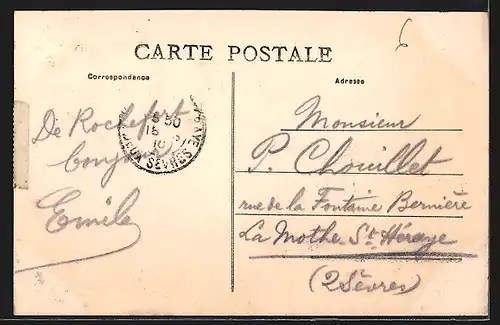 6
CARTE POSTALE
Correspondance
Adresse
De Rochefort
bonjour
Emile
5 30
15
10
SEVRES
Monsieur
P. Chouillet
rue de la Fontaine Bernière
La Mothe-St-Héraye
(2 Sèvres)